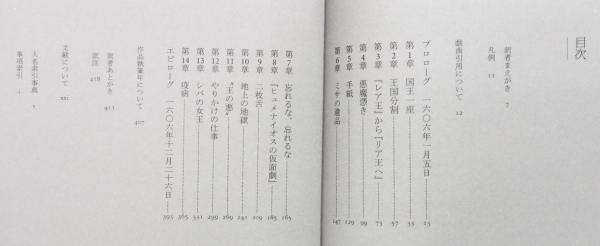 目次
訳者まえがき 7
凡例 11
戯曲引用について 12
プロローグ 一六〇六年一月五日 13
第1章 国王一座 33
第2章 王国分割 57
第3章 『レア王』から『リア王へ』 73
第4章 悪魔憑き 99
第5章 手紙 129
第6章 ミサの遺品 147
第7章 忘れるな、忘れるな 165
第8章 『ヒュメナイオスの仮面劇』 185
第9章 二枚舌 209
第10章 地上の地獄 241
第11章 “王の悪” 269
第12章 やりかけの仕事 299
第13章 シバの女王 331
第14章 疫病 365
エピローグ 一六〇六年十二月二十六日 393
作品執筆年について 407
訳者あとがき 411
訳注 418
文献について xxi
人名索引事典 v
事項索引 i